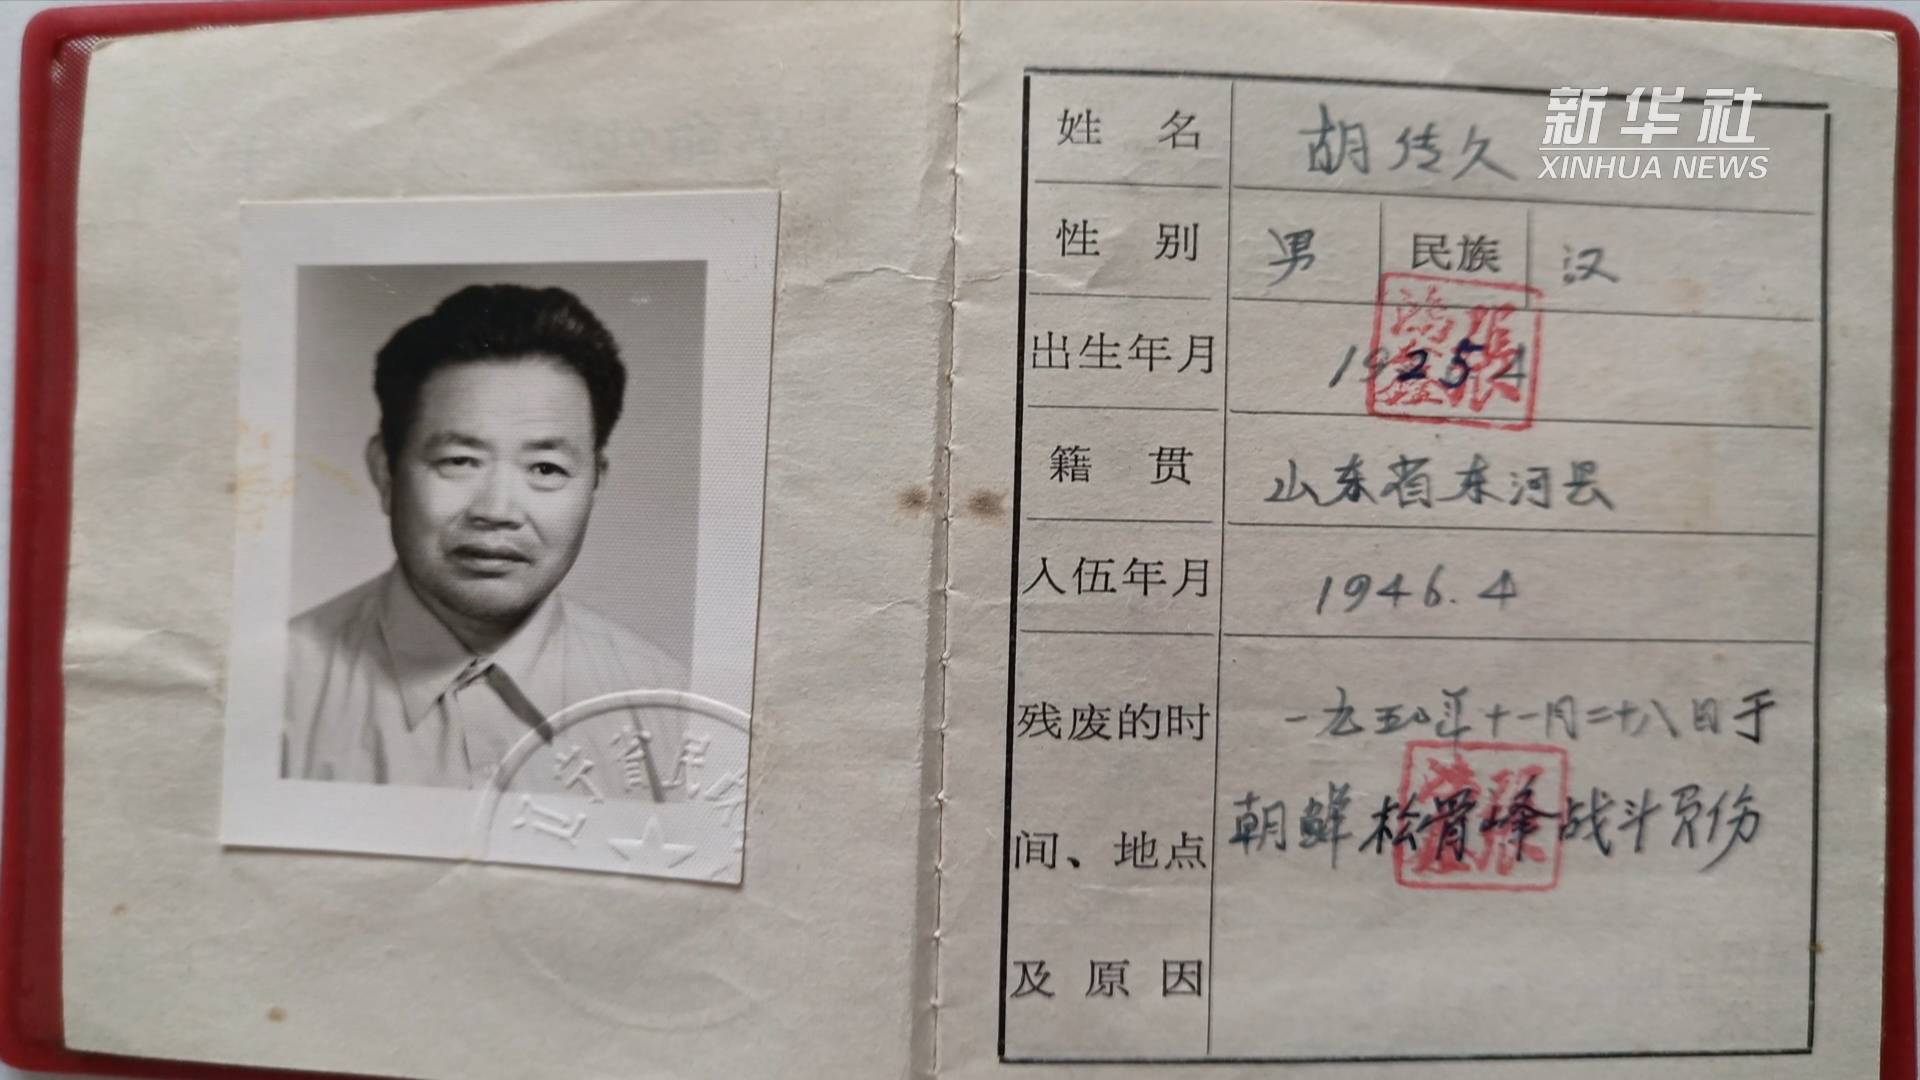 新华社
XINHUA NEWS
姓 名 胡传久
性 别 男 民族 汉
出生年月 1925.4
籍 贯 山东省东河县
入伍年月 1946.4
残废的时 一九五〇年十一月二十八日于
间、地点 朝鲜松骨峰战斗负伤
及原因
辽宁省民